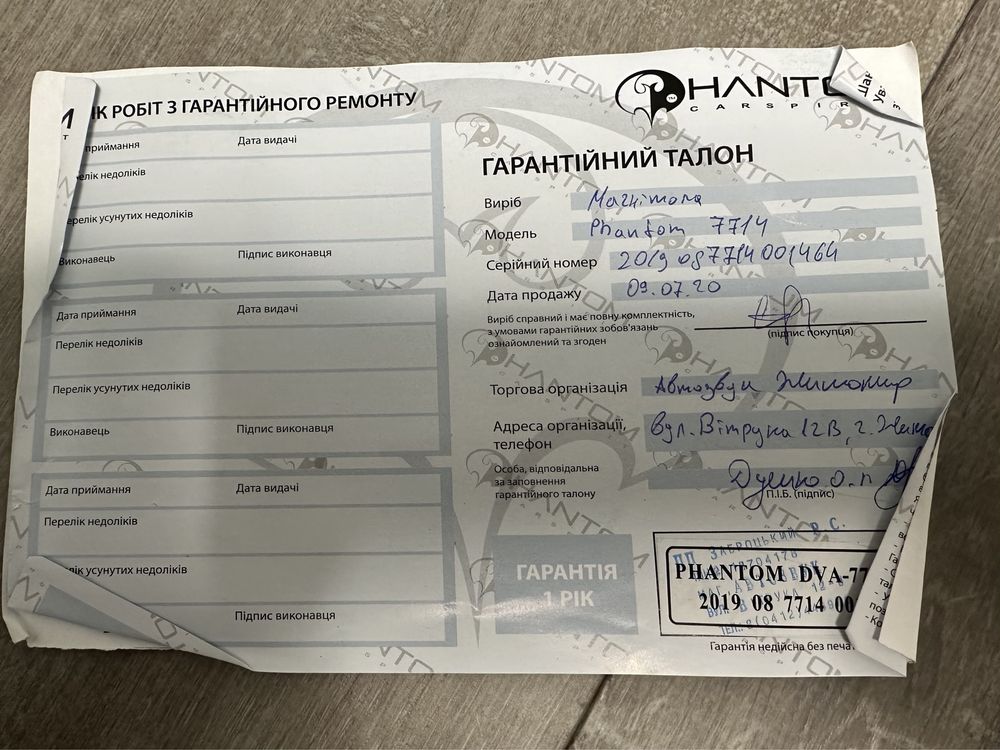 ІК РОБІТ З ГАРАНТІЙНОГО РЕМОНТУ
приймання Дата видачі
елік недоліків
ерелік усунутих недоліків
Виконавець Підпис виконавця
Дата приймання Дата видачі
Перелік недоліків
Перелік усунутих недоліків
Виконавець Підпис виконавця
Дата приймання Дата видачі
Перелік недоліків
лік усунутих недоліків
Підпис виконавця
PHANTO
CARSPIR
ГАРАНТІЙНИЙ ТАЛОН
Виріб Магнітола
Модель Phantom 7714
Серійний номер 2019 08 7714 001464
Дата продажу 09.07.20
Виріб справний і має повну комплектність,
з умовами гарантійних зобов'язань
ознайомлений та згоден
(підпис покупця)
Торгова організація Автозвук Житомир
Адреса організації, вул. Вітрука 12В, г. Жито
телефон
Особа, відповідальна
за заповнення
гарантійного талону
П.І.Б. (підпис)
ГАРАНТІЯ
1 РІК
ПП ЗАБРОЦЬКИЙ Р.С.
PHANTOM DVA-77
2019 08 7714 00
Гарантія недійсна без печа